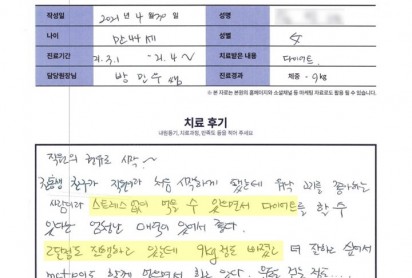 작성일 2021 4월 30일 성명
나이 만 44세 성별 女
진료기간 21.3.1 ~ 21.4~ 치료받은 내용 다이어트
담당원장님 방민우 쌤 진료경과 체중 -9kg
※ 본 자료는 본원의 홈페이지와 소셜채널 등 마케팅 자료로도 활용 될 수 있습니다.
치료 후기
내원동기, 치료과정, 만족도 등을 적어 주세요
직원의 권유로 시작~
친구가 직원과 처음 시작하게 됐는데 워낙 고기를 좋아하는
사람이라 스트레스 없이 먹을 수 있으면서 다이어트를 할 수
있다는 엄청난 매력이 있어서 좋다.
2달정도 진행하고 있는데 9kg 정도 빠졌고 더 잘하고 싶어서
함께